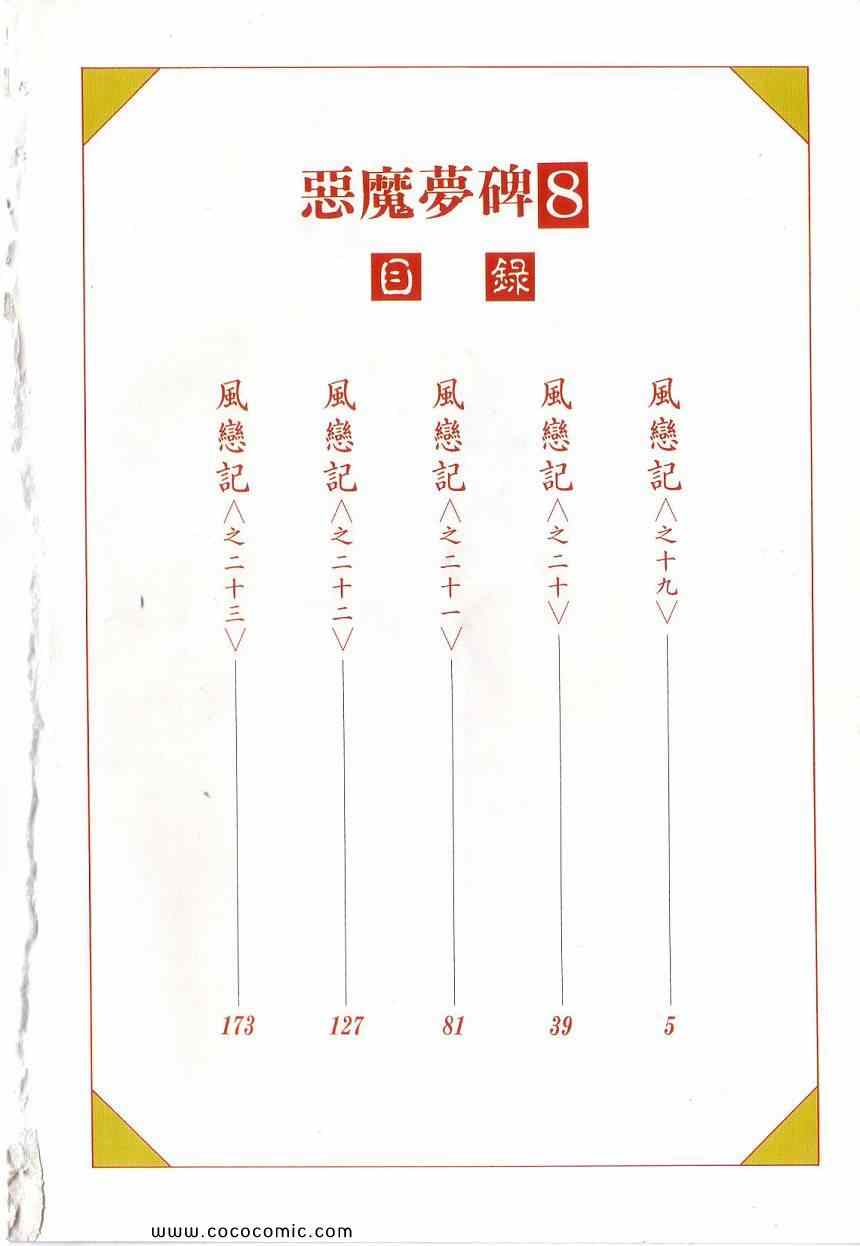 惡魔夢碑8
目錄
風戀記〈之十九〉5
風戀記〈之二十〉39
風戀記〈之二十一〉81
風戀記〈之二十二〉127
風戀記〈之二十三〉173
www.cococomic.com